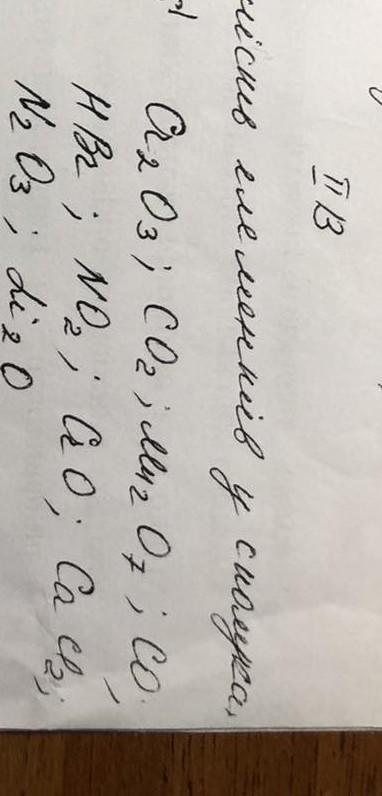 II В
елементів у сполука
Cr2O3; CO2; Mn2O7; CO
HBr; NO2; CrO; CaCl2;
N2O3; Li2O